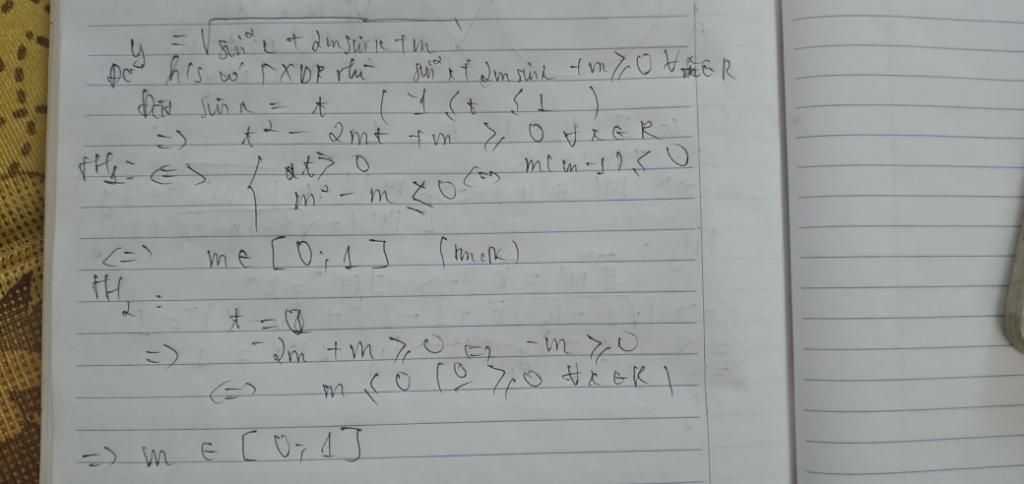 y = √(sin²x + 2m sinx + m)
Để h/s có TXĐ R thì sin²x + 2m sinx + m ≥ 0 ∀x ∈ R
Đặt sin x = t ( -1 ≤ t ≤ 1 )
=> t² - 2mt + m ≥ 0 ∀ x ∈ R
TH1: <=> { t > 0
m² - m ≤ 0 <=> m(m-1) ≤ 0
<=> m ∈ [0; 1]
TH2:
t = 0
=> -2m + m ≥ 0 <=> -m ≥ 0
<=> m ≤ 0 (0 ≥ 0 ∀x ∈ R)
=> m ∈ [0; 1]